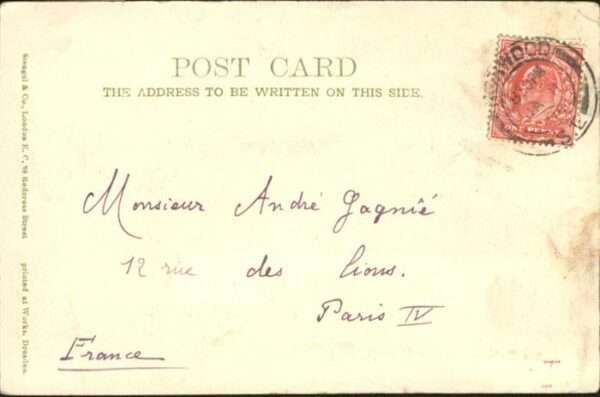 POST CARD
THE ADDRESS TO BE WRITTEN ON THIS SIDE.
Monsieur André Gagnié
12 rue des lions.
Paris IV
France
Stengel & Co., London E. C., 39 Redcross Street printed at Works, Dresden.
WOOD
S.E